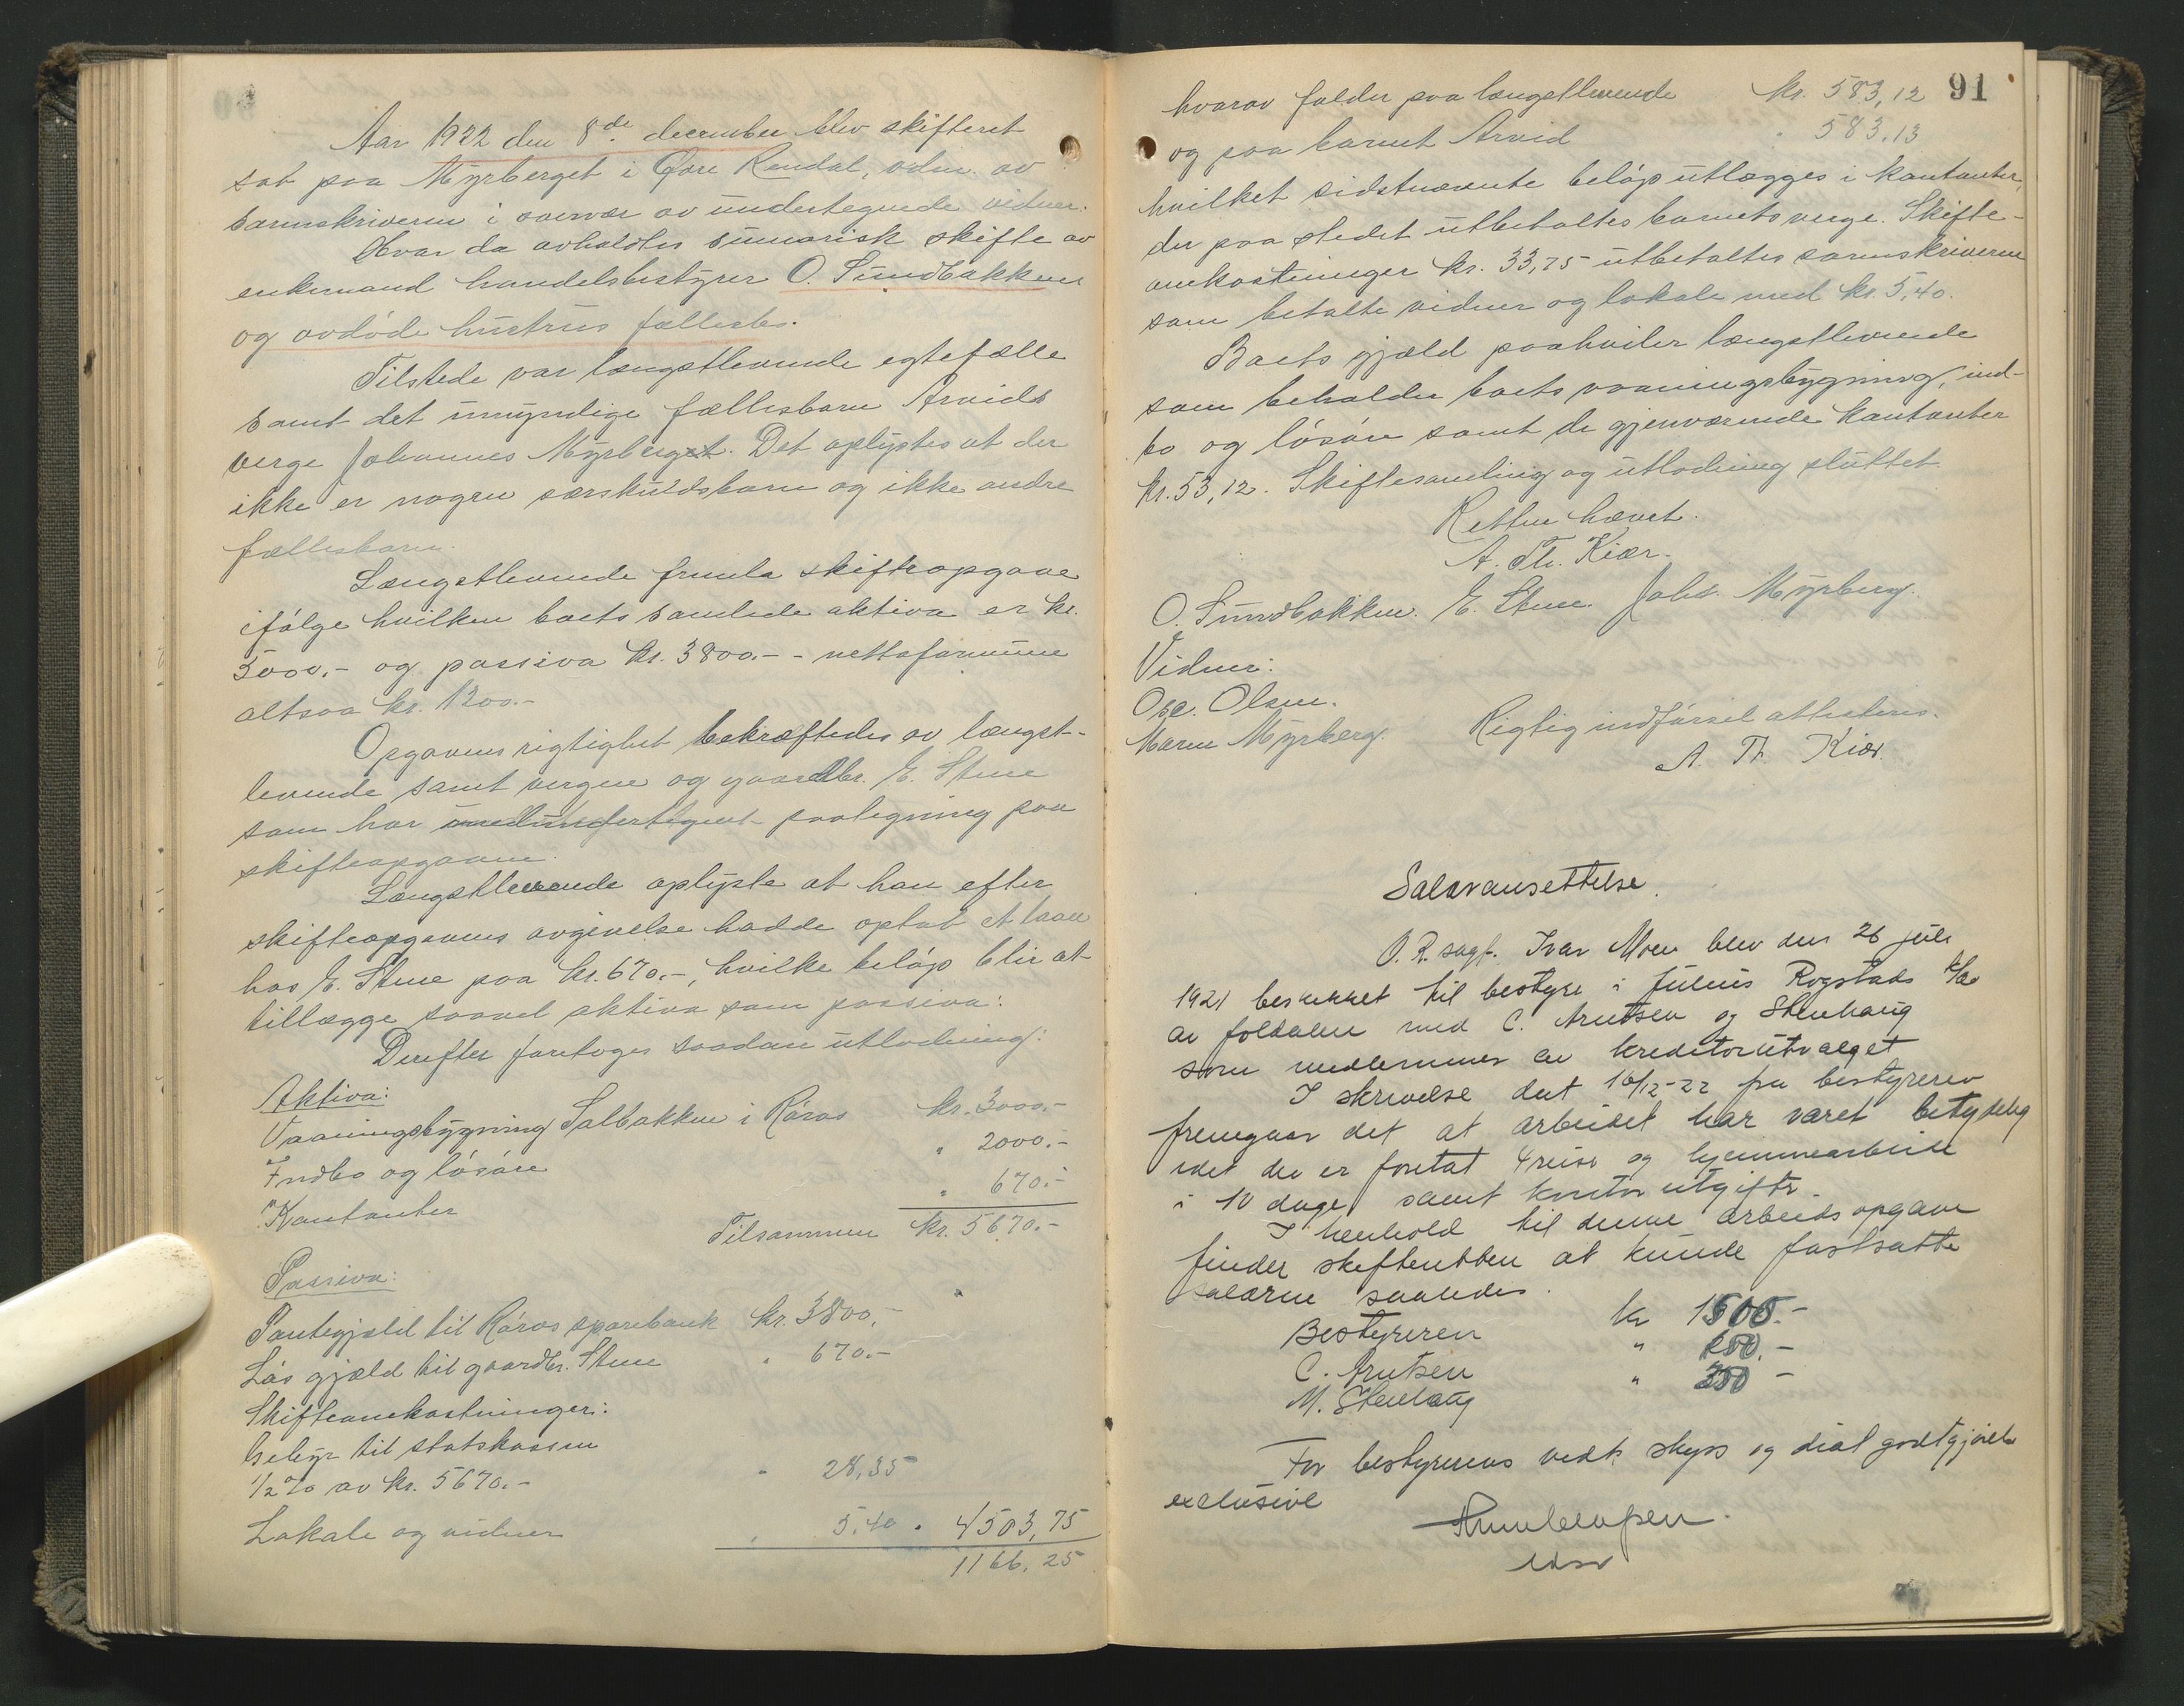 Aar 1922 den 8de december blev skifteret
sat paa Myrberget i Øvre Rendal, adm. av
sorenskriveren i overvær av undertegnede vidner.
Hvor da avholdtes summarisk skifte av
enkemand handelsbestyrer O. Sundbakken
og avdøde hustrus fællesbo.
Tilstede var længstlevende egtefælle
samt det umyndige fællesbarn Arvids
verge Johannes Myrberget. Det oplystes at der
ikke er nogen særskuldsbarn og ikke andre
fællesbarn.
Længstlevende fremla skifteopgave
ifølge hvilken boets samlede aktiva er kr.
5000.- og passiva kr. 3800.- - nettoformue
altsaa kr. 1200.-
Opgavens rigtighet bekræftedes av længst-
levende samt vergen og gaardbr. E. Stene
som har medundertegnet paategning paa
skifteopgaven.
Længstlevende oplyste at han efter
skifteopgavens avgivelse hadde optat et laan
hos E. Stene paa kr. 670.-, hvilke beløp blir at
tillægge saavel aktiva som passiva:
Derefter foretoges saadan utlodning:
Aktiva:
Vaaningsbygning Salbakken i Røros kr. 3000.-
Indbo og løsøre " 2000.-
Kontanter " 670.-
Tilsammen kr. 5670.-
Passiva:
Pantegjæld til Røros sparebank kr. 3800,-
Løs gjæld til gaardbr. Stene " 670.-
Skifteomkostninger:
Gebyr til statskassen
1/2 % av kr. 5670.- " 28,35
Lokale og vidner " 5.40 " 4503,75
1166,25
91
hvorav falder paa længstlevende kr. 583,12
og paa barnet Arvid " 583.13
hvilket sidstnævnte beløp utlægges i kontanter,
der paa stedet utbetaltes barnets verge. Skifte-
omkostninger kr. 33,75 utbetaltes sorenskriveren
som betalte vidner og lokale med kr. 5,40.
Boets gjæld paahviler længstlevende
som beholder boets vaaningsbygning, ind-
bo og løsøre samt de gjenværende kontanter
kr. 53,12. Skiftesamling og utlodning sluttet.
Retten hævet.
A. Th. Kiær.
O. Sundbakken. E. Stene. Johs. Myrberg.
Vidner:
Osc. Olsen.
Maren Myrberg. Rigtig indførsel attesteres.
A. Th. Kiær.
Salæransettelse.
O. R. sagf. Ivar Moen blev den 26 juli
1921 beskikket til bestyrer i Julius Rogstads k/bo
av foldalen med C. Arntsen og Stenhaug
som medlemmer av kreditorutvalget
I skrivelse dat 16/12-22 fra bestyreren
fremgaar det at arbeidet har været betydelig
idet der er foretat 4 reiser og hjemmearbeide
i 10 dage samt kontorutgifter.
I henhold til denne arbeidsopgave
finder skifteretten at kunde fastsætte
salærene saaledes.
Bestyreren kr 1500.-
C. Arntsen " 250.-
M. Stenhaug " 350 -
For bestyrerens vedk. skyss og diæt godtgjørelse
exclusive